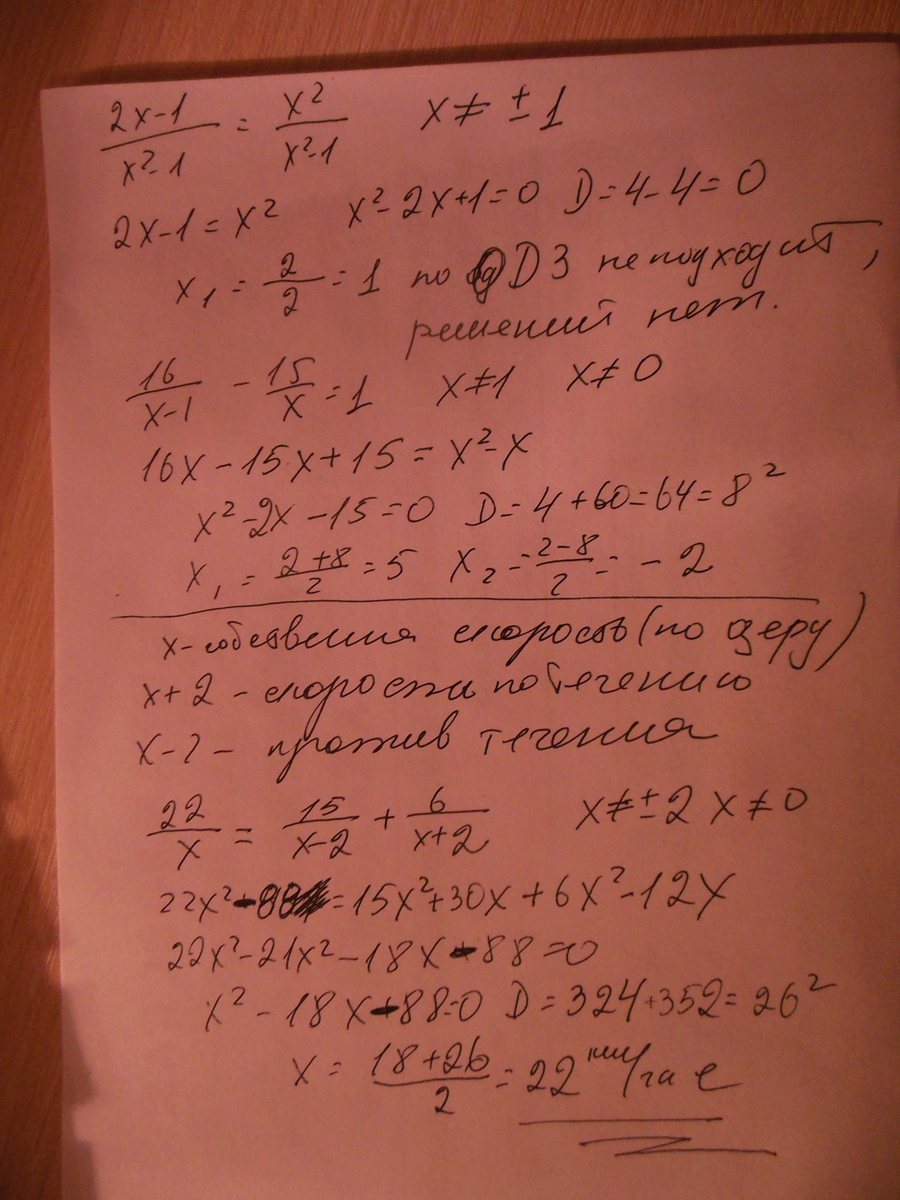 (2x-1)/(x²-1) = x²/(x²-1) x ≠ ± 1
2x-1 = x² x²-2x+1=0 D=4-4=0
x₁ = 2/2 = 1 по ОДЗ не подходит,
решений нет.
16/(x-1) - 15/x = 1 x≠1 x≠0
16x-15x+15 = x²-x
x²-2x-15=0 D=4+60=64=8²
x₁ = (2+8)/2 = 5 x₂ = (2-8)/2 = -2
x- скорость (по озеру)
x+2 - по течению
x-2 - против течения
22/x = 15/(x-2) + 6/(x+2) x≠±2 x≠0
22x²-88=15x²+30x+6x²-12x
22x²-21x²-18x-88=0
x²-18x-88=0 D=324+352=26²
x = (18+26)/2 = 22 км/